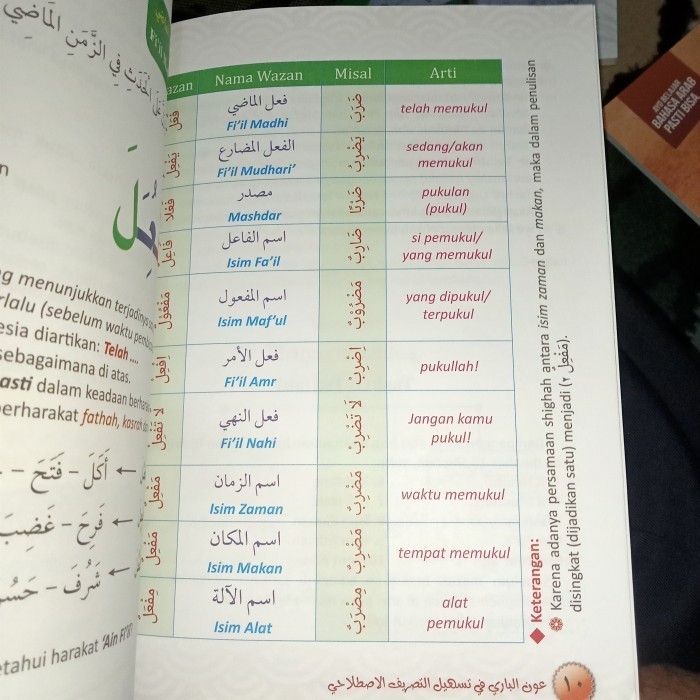 فِي الزَّمَنِ المَاضِي
ng menunjukkan
rlalu (sebelum waktu
esia diartikan: Telah ....
sebagaimana di atas.
asti dalam keadaan
berharakat fathah, kasrah
← أَكَلَ – فَتَحَ –
← فَرِحَ – غَضِبَ
← شَرُفَ –
etahui harakat 'Ain Fi'il
azan Nama Wazan Misal Arti
فَعَلَ فعل الماضي ضَرَبَ telah memukul
Fi'il Madhi
يَفْعِلُ الفعل المضارع يَضْرِبُ sedang/akan
Fi'il Mudhari' memukul
فَعْلًا مصدر ضَرْبًا pukulan
Mashdar (pukul)
فَاعِلٌ اسم الفاعل ضَارِبٌ si pemukul/
Isim Fa'il yang memukul
مَفْعُوْلٌ اسم المفعول مَضْرُوْبٌ yang dipukul/
Isim Maf'ul terpukul
اِفْعِلْ فعل الأمر اِضْرِبْ pukullah!
Fi'il Amr
لَا تَفْعِلْ فعل النهي لَا تَضْرِبْ Jangan kamu
Fi'il Nahi pukul!
مَفْعِلٌ اسم الزمان مَضْرِبٌ waktu memukul
Isim Zaman
مَفْعِلٌ اسم المكان مَضْرِبٌ tempat memukul
Isim Makan
مِفْعَلٌ اسم الآلة مِضْرَبٌ alat
Isim Alat pemukul
Keterangan:
Karena adanya persamaan shighah antara isim zaman dan makan, maka dalam penulisan
disingkat (dijadikan satu) menjadi (مَفْعِلٌ ٢).
١٠ عون الباري في تسهيل التصريف الاصطلاحي
BAHASA ARAB
PASTI BISA